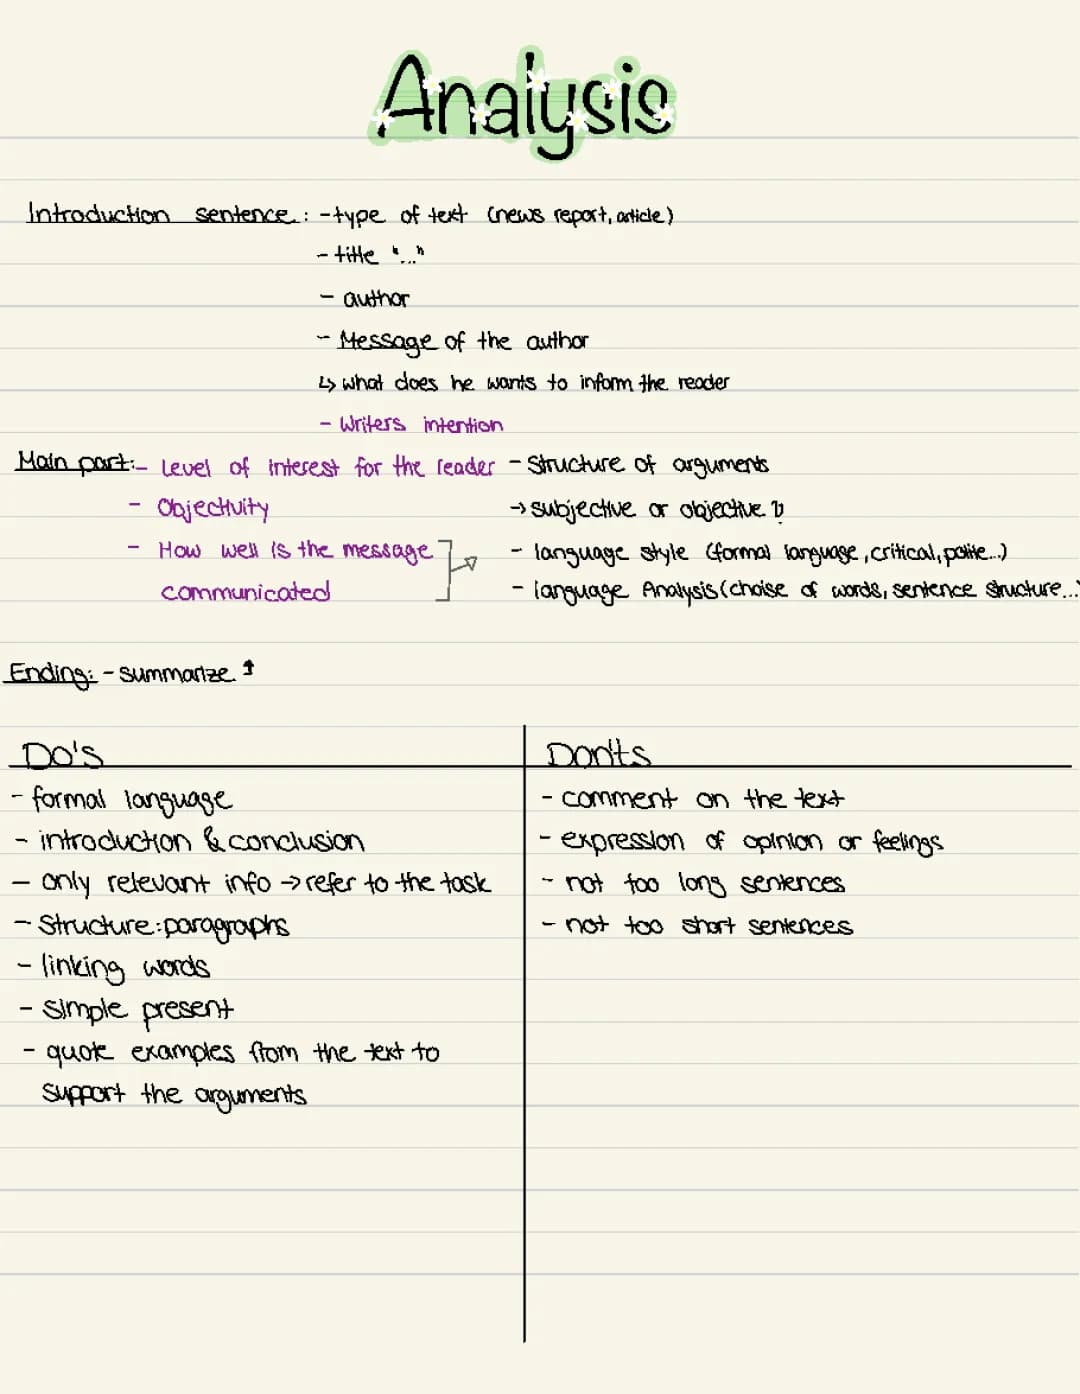 Analysis
Introduction sentence: - type of text (news report, article)
- title "..."
- author
- Message of the author
↳ what does he wants to inform the reader
- Writers intention
Main part: - Level of interest for the reader - Structure of arguments
- Objectivity → subjective or objective ?
- How well is the message - language style (formal language, critical, polite...)
communicated - language Analysis (choise of words, sentence structure...)
Ending: - summarize ↑
Do's Don'ts
- formal language - comment on the text
- introduction & conclusion - expression of opinion or feelings
- only relevant info → refer to the task - not too long sentences
- Structure: paragraphs - not too short sentences
- linking words
- simple present
- quote examples from the text to
support the arguments